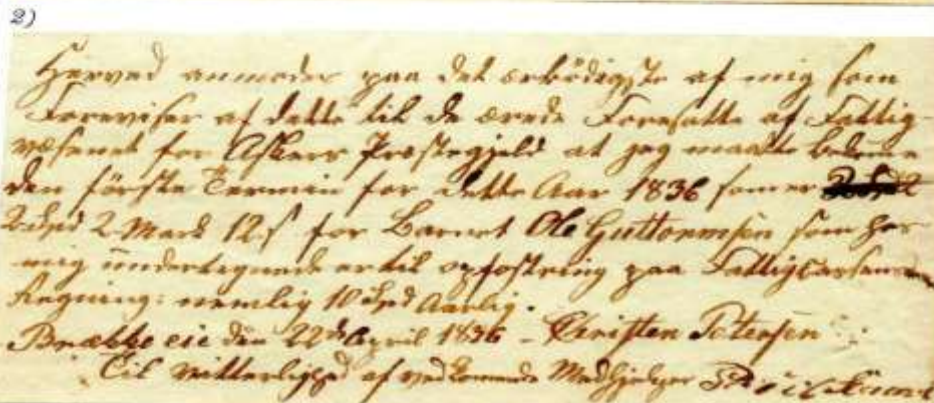 2)
Herved anmodes paa det ærbödigste af mig som
Foreviser af dette til de ærede Foresatte af Fattig-
væsenet for Askers Præstegjeld at jeg maatte bekomme
den förste Termin for dette Aar 1836 som er
2 Spd 2 Mark 12 s for Barnet Ole Guttormsen som hos
mig undertegnede er til opfostring paa Fattigkassens
Regning: nemlig 10 Spd Aarlig.
Brække eie den 22de April 1836 - Christen Petersen
Til Vitterlighed af vedkommende Medhjelper